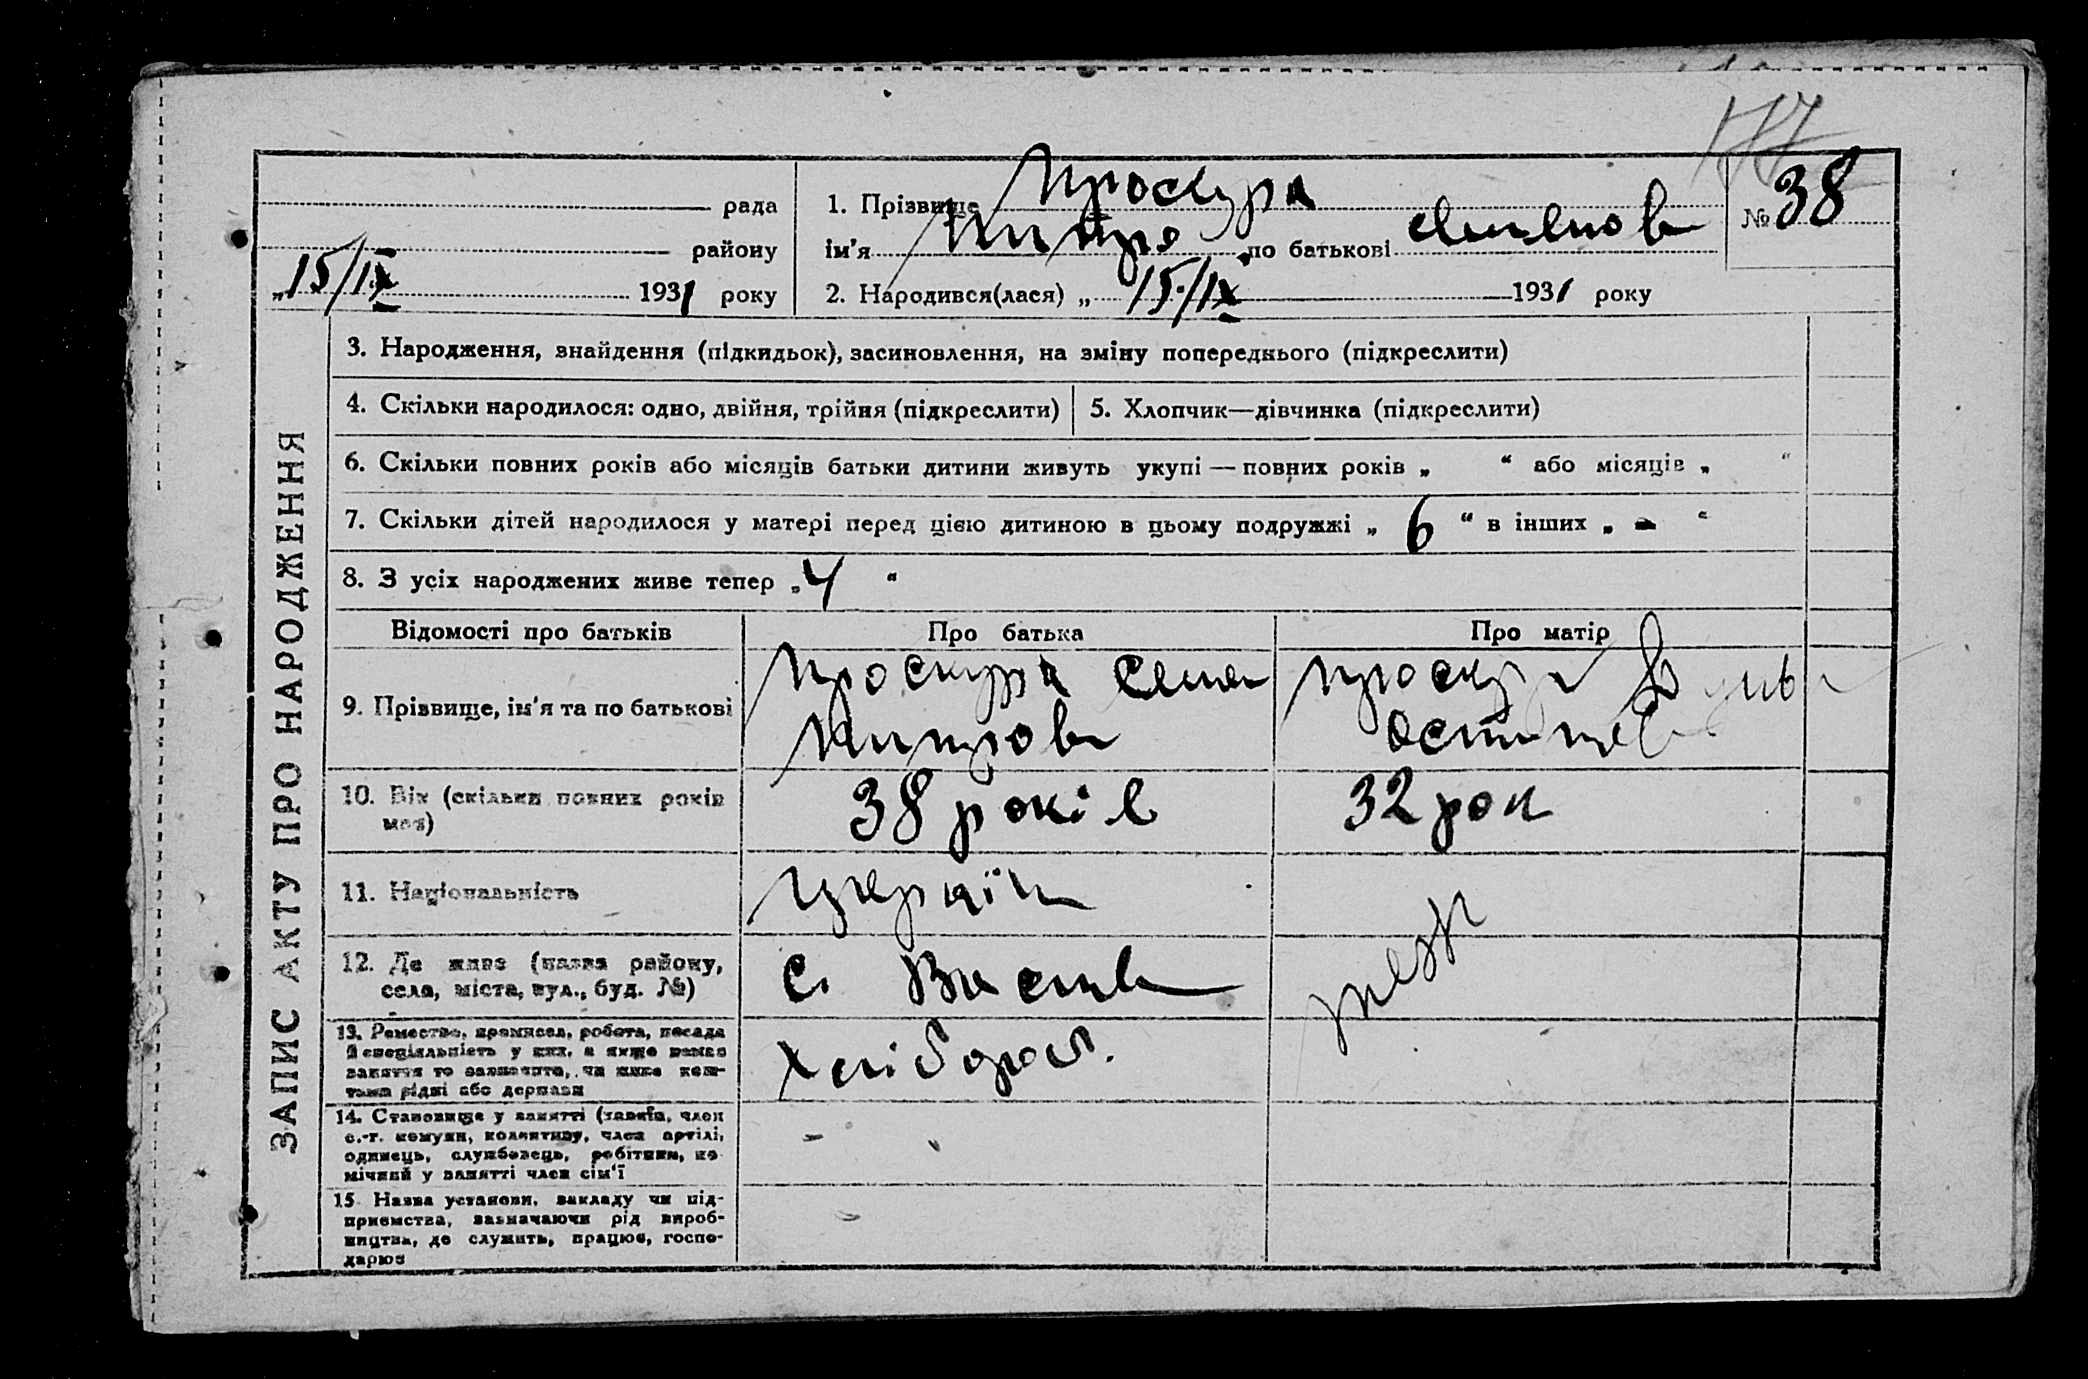 177
рада
1. Прізвище Проскура
№ 38
району
ім'я по батькові
„15/IX 1931 року
2. Народився(лася) „ 15/IX 1931 року
ЗАПИС АКТУ ПРО НАРОДЖЕННЯ
3. Народження, знайдення (підкидьок), засиновлення, на зміну попереднього (підкреслити)
4. Скільки народилося: одно, двійня, трійня (підкреслити)
5. Хлопчик—дівчинка (підкреслити)
6. Скільки повних років або місяців батьки дитини живуть укупі — повних років „ “ або місяців „ “
7. Скільки дітей народилося у матері перед цією дитиною в цьому подружжі „ 6 “ в інших „ - “
8. З усіх народжених живе тепер „ 4 “
Відомості про батьків
Про батька
Про матір
9. Прізвище, ім'я та по батькові
Проскура Семен
Митров
Проскура
10. Вік (скільки повних років
має)
38 років
32 рок
11. Національність
україн
12. Де живе (назва району,
села, міста, вул., буд. №)
с.
13. Ремество, промисел, робота, посада
й спеціяльність у них, а якщо немає
заняття то зазначити, чи живе кош-
тами рідні або держави
Хлібороб.
14. Становище у занятті (хазяїн, член
с.-г. комуни, колективу, член артілі,
одинець, службовець, робітник, по-
мічний у занятті член сім'ї
15. Назва установи, закладу чи під-
приємства, зазначаючи рід вироб-
ництва, де служить, працює, госпо-
дарює